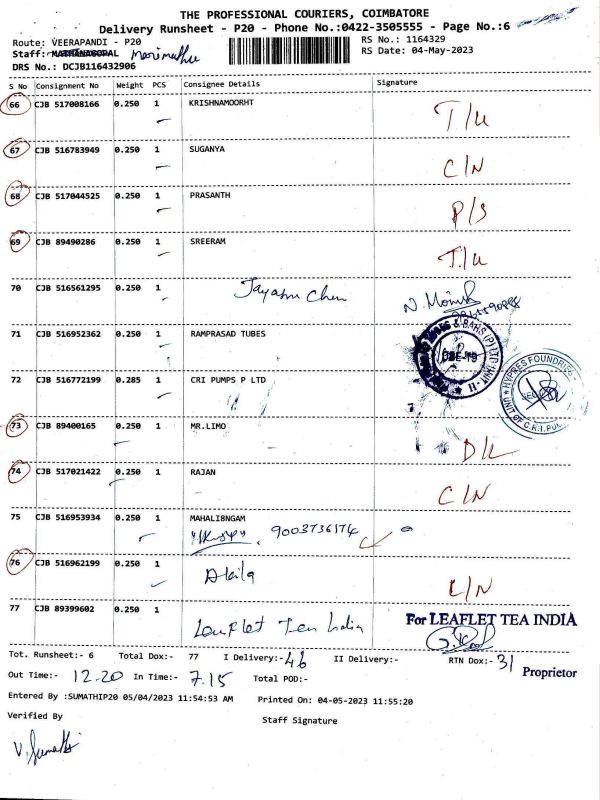 THE PROFESSIONAL COURIERS, COIMBATORE
Delivery Runsheet - P20 - Phone No.:0422-3505555 - Page No.:6
Route: VEERAPANDI - P20
RS No.: 1164329
Staff: MATHANAGOPAL Marimuthu
RS Date: 04-May-2023
DRS No.: DCJB116432906
S No Consignment No Weight PCS Consignee Details Signature
66 CJB 517008166 0.250 1 KRISHNAMOORHT T/U
67 CJB 516783949 0.250 1 SUGANYA C/N
68 CJB 517044525 0.250 1 PRASANTH P/S
69 CJB 89490286 0.250 1 SREERAM T/U
70 CJB 516561295 0.250 1
71 CJB 516952362 0.250 1 RAMPRASAD TUBES
72 CJB 516772199 0.285 1 CRI PUMPS P LTD
HYPRES FOUNDRIES
UNIT OF C.R.I. PUM
73 CJB 89400165 0.250 1 MR.LIMO D/L
74 CJB 517021422 0.250 1 RAJAN C/N
75 CJB 516953934 0.250 1 MAHALI8NGAM
9003736174
76 CJB 516962199 0.250 1 Akila C/N
77 CJB 89399602 0.250 1 Leaflet Tea India
For LEAFLET TEA INDIA
Proprietor
Tot. Runsheet:- 6 Total Dox:- 77 I Delivery:- 46 II Delivery:- RTN Dox:- 31
Out Time:- 12.20 In Time:- 7.15 Total POD:-
Entered By :SUMATHIP20 05/04/2023 11:54:53 AM Printed On: 04-05-2023 11:55:20
Verified By Staff Signature
V. Sumathi